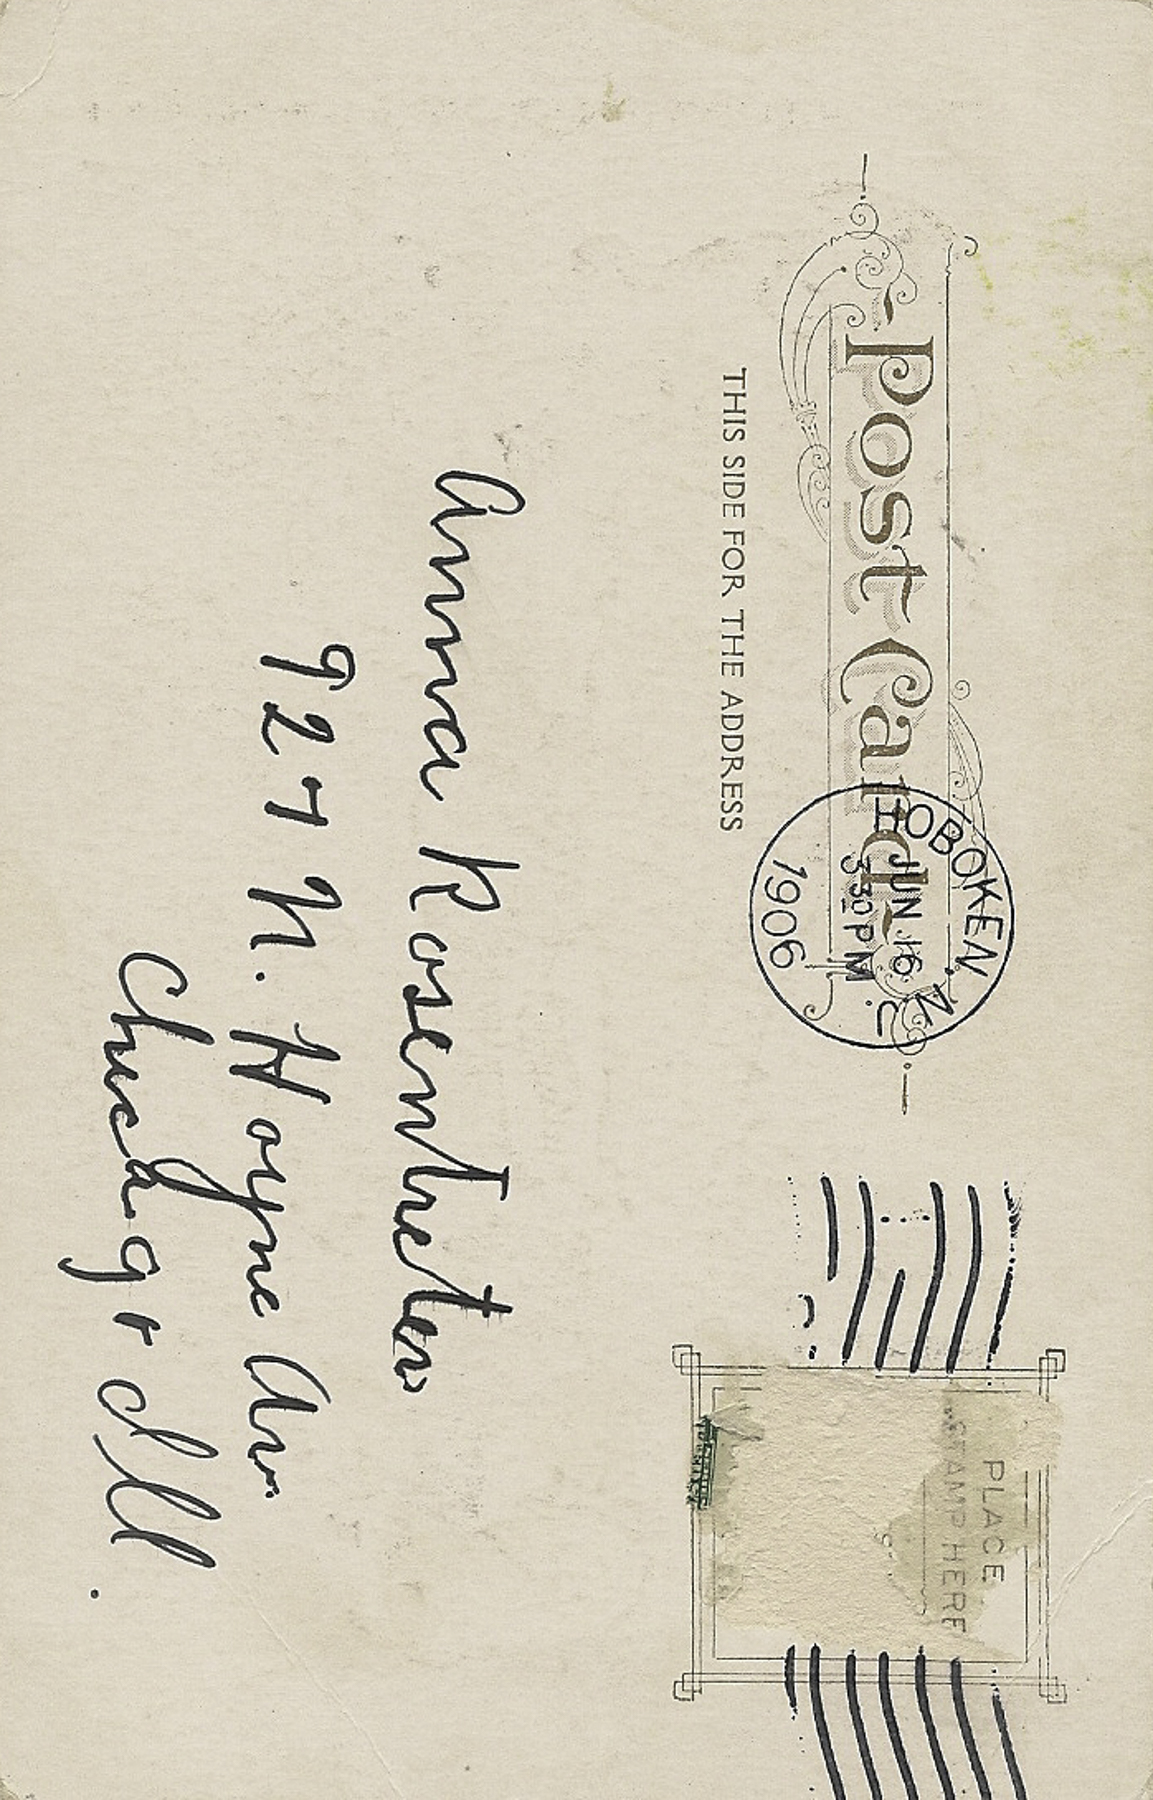 Post Card
THIS SIDE FOR THE ADDRESS
HOBOKEN. N. J.
JUN 16
3 30 PM
1906
PLACE
STAMP HERE
Anna Rosentreter
927 N. Hoyne Av.
Chicago Ill.